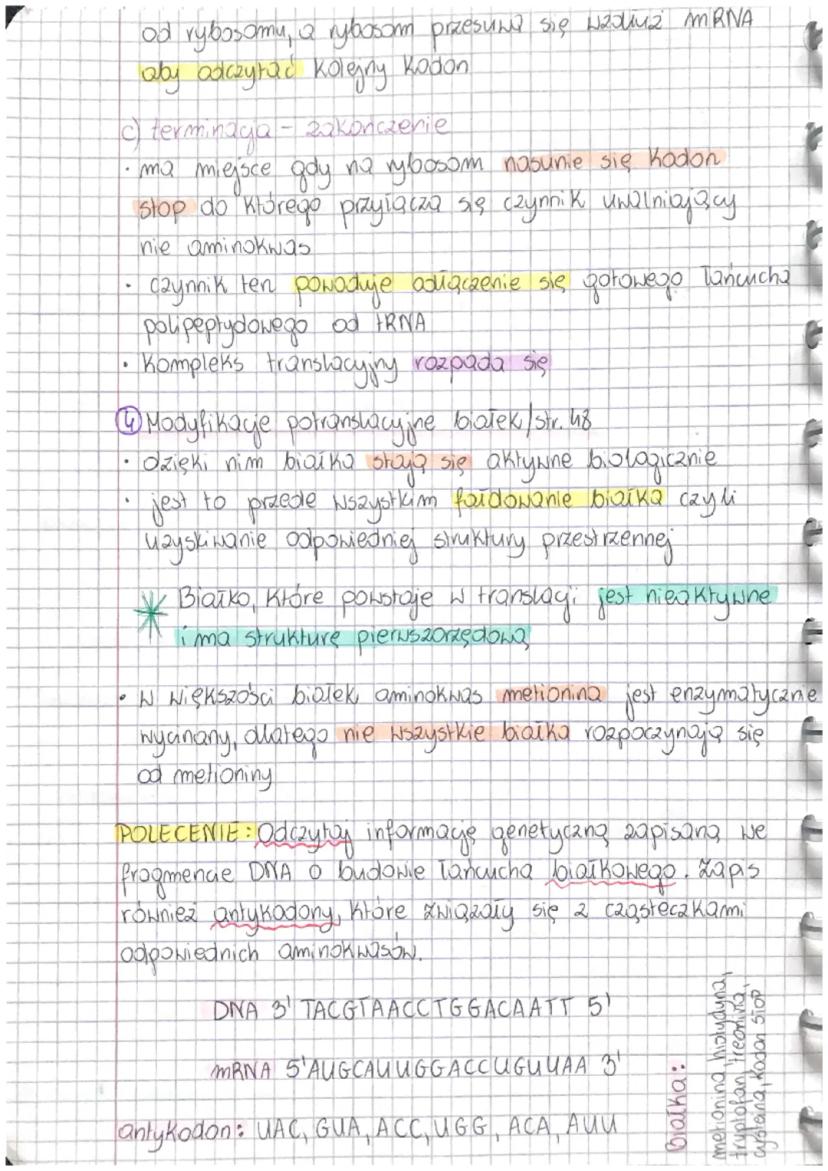 od rybosomu, a rybosom przesuwa się wzdłuż mRNA
aby odczytać kolejny kodon
c) terminacja - zakończenie
• ma miejsce gdy na rybosom nasunie się kodon
stop do którego przyłącza się czynnik uwalniający
nie aminokwas
• czynnik ten powoduje odłączenie się gotowego łańcucha
polipeptydowego od tRNA
• Kompleks translacyjny rozpada się
④ Modyfikacje potranslacyjne białek/str. 48
• Dzięki nim białka stają się aktywne biologicznie
• jest to przede wszystkim fałdowanie białka czyli
uzyskiwanie odpowiedniej struktury przestrzennej
Białko, które powstaje w translacji jest nieaktywne
i ma strukturę pierwszorzędową
• W większości białek aminokwas metionina jest enzymatycznie
wycinany, dlatego nie wszystkie białka rozpoczynają się
od metioniny
POLECENIE: Odczytaj informację genetyczną zapisaną we
fragmencie DNA o budowie łańcucha białkowego. Zapis
również antykodony, które związały się z cząsteczkami
odpowiednich aminokwasów.
DNA 3' TACGTAACCTGGACAATT 5'
mRNA 5'AUGCAUUGGACCUGUUAA 3'
antykodon: UAC, GUA, ACC, UGG, ACA, AUU
białka:
metionina, histydyna,
tryptofan, treonina,
cysteina, kodon stop